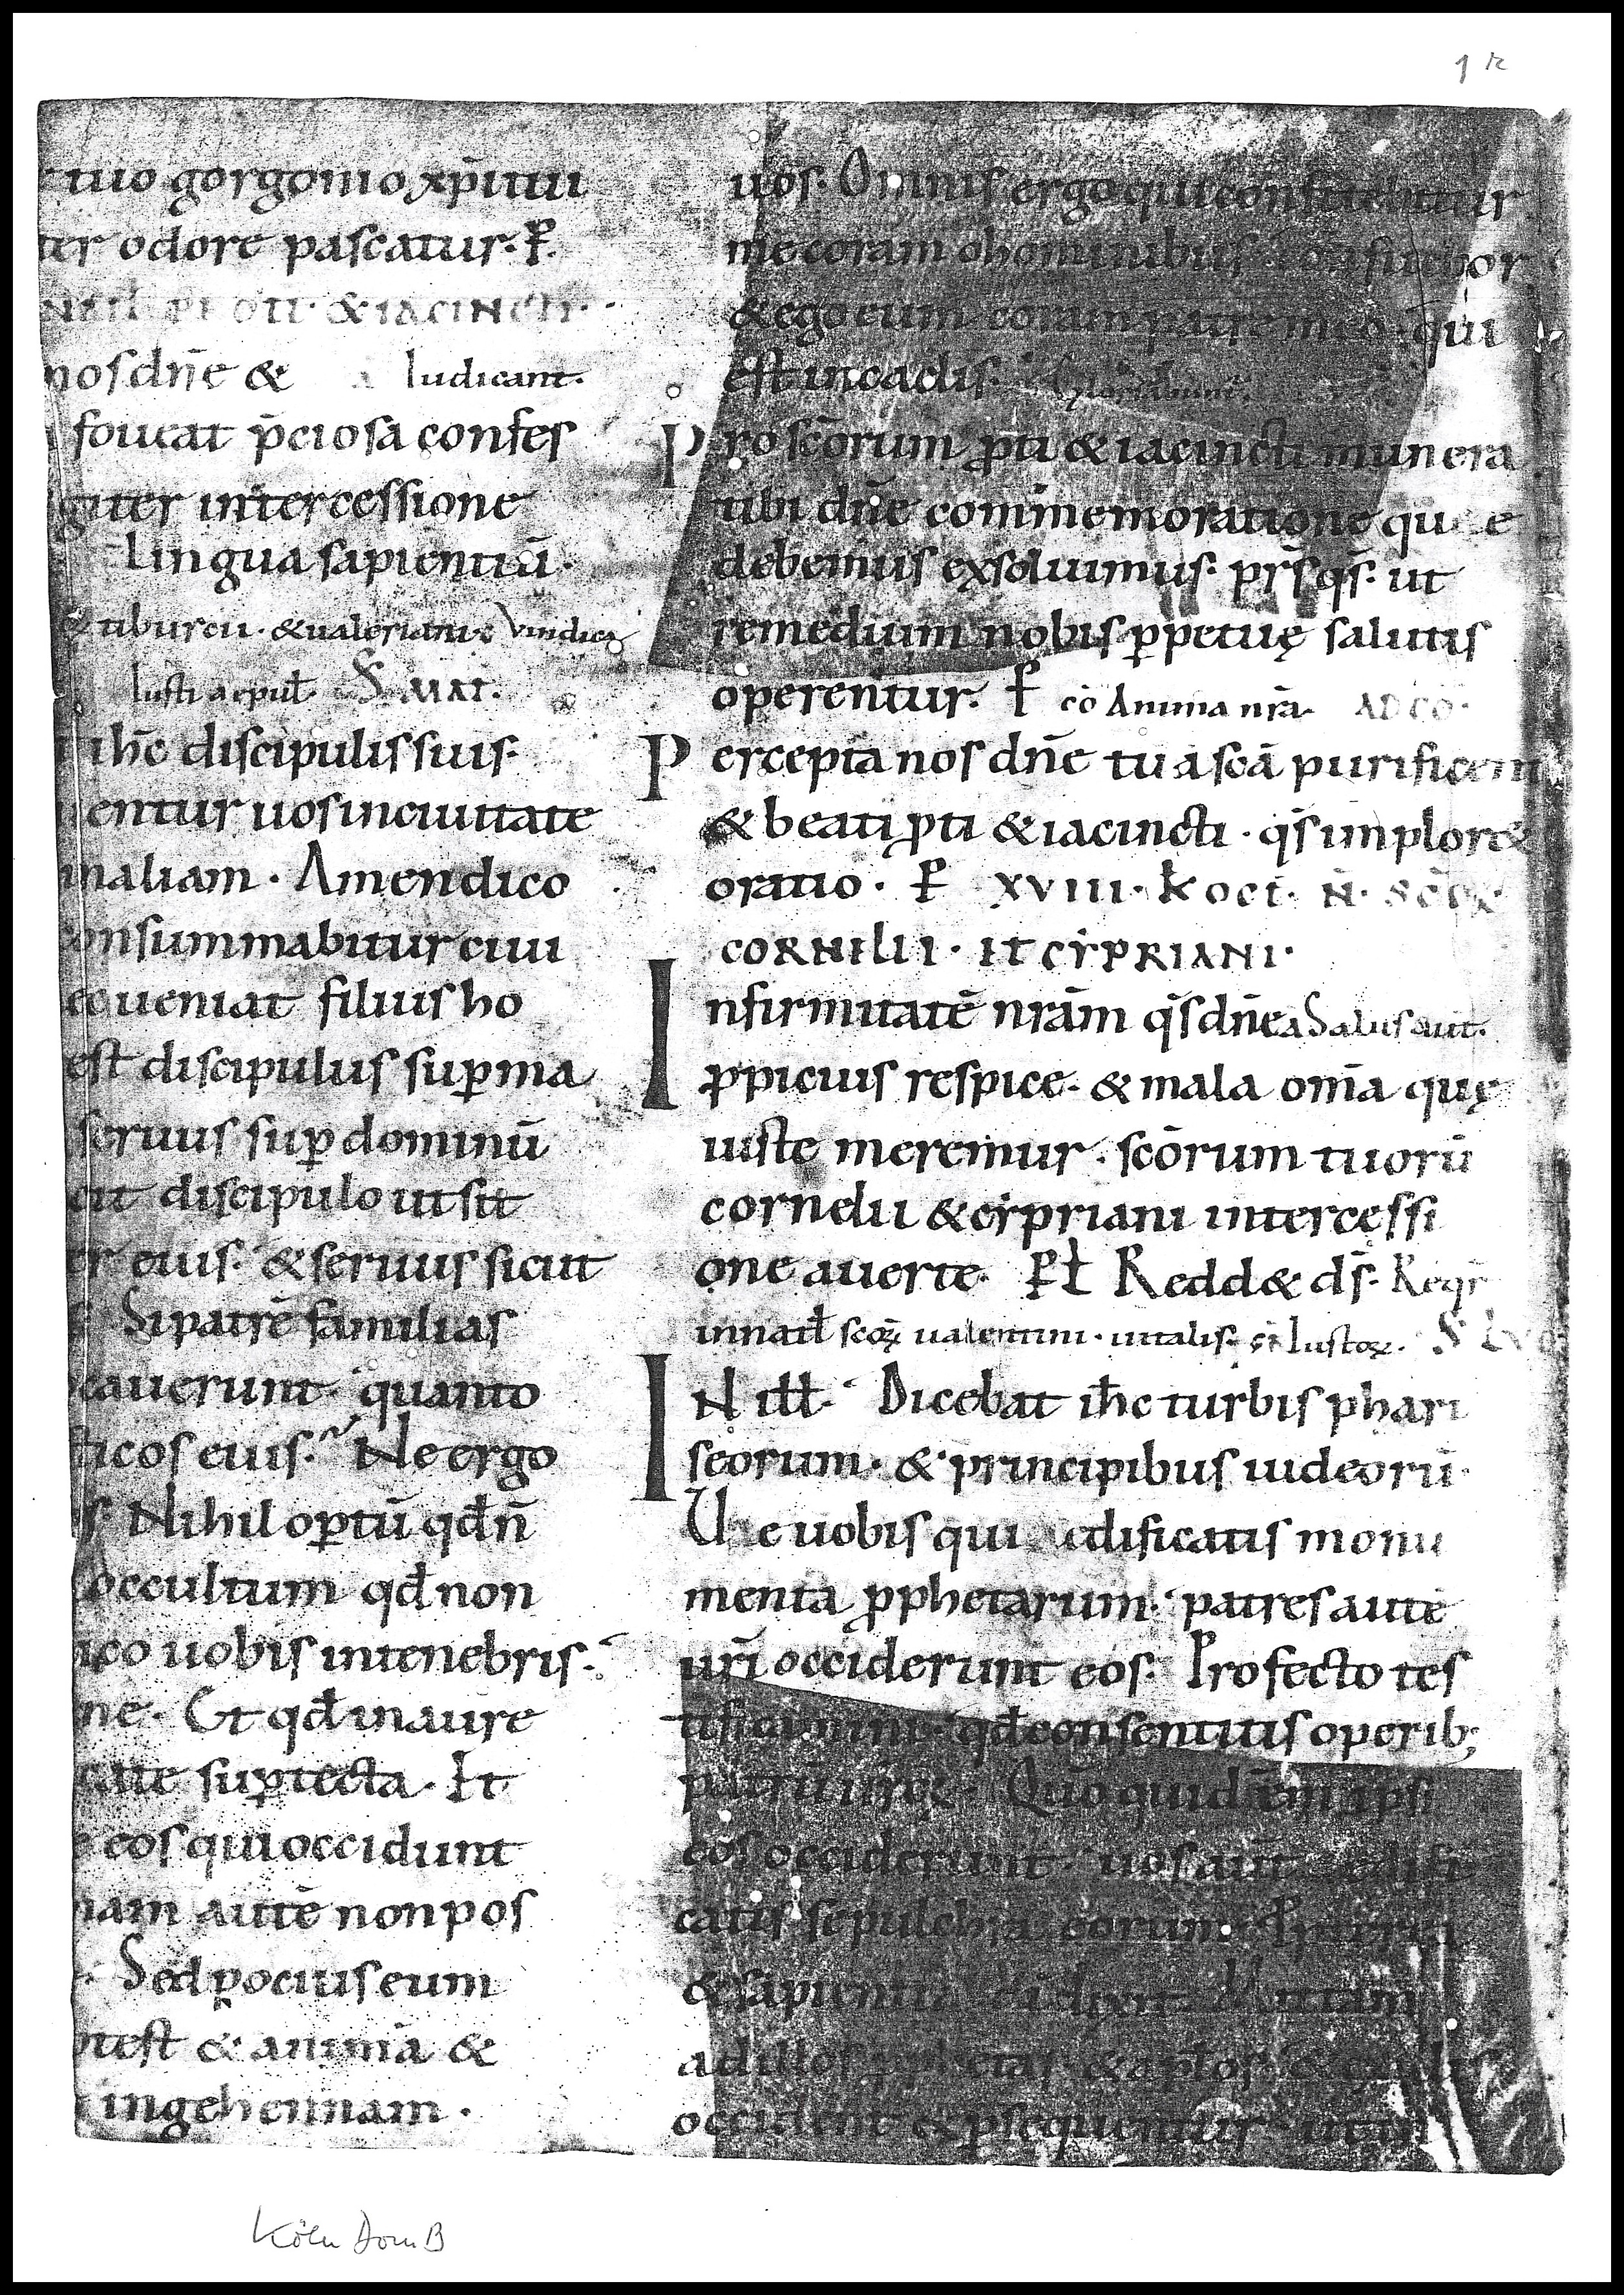 1 r
tuo gorgonio xp̄i tui
ter odore pascatur. P̄.
PROTI. & IACINCTI.
nos dn̄e & Iudicant.
foueat p̄ciosa confes
giter intercessione
Lingua sapientiū.
& tiburcii. & ualeriani. Vindica
Iusti aepul. S. MAT.
ihc̄ discipulis suis.
entur uos in ciuitate
in aliam. Amen dico
onsummabitur ciui
ec ueniat filius ho
est discipulus sup̱ ma
seruus sup̱ dominū
cit discipulo ut sit
er eius. & seruus sicut
Si patrē familias
ocauerunt. quanto
ticos eius. Ne ergo
s. Nihil op̱tū qd̄ n̄
occultum qd̄ non
ico uobis in tenebris.
ne. Et qd̄ in aure
cate sup̱ tecta. Et
eos qui occidunt
nam autē non pos
Sed pocius eum
otest & animā &
in gehennam.
uos. Omnis ergo qui confitebitur
me coram hominibus confitebor
& ego eum coram patre meo. qui
est in caelis.
Pro scōrum p̱ti & iacincti munera
tibi dn̄e commemoratione que
debemus exsoluimus. pr̄s qs̄. ut
remedium nobis p̱petuę salutis
operentur. P̄ cō Anima nr̄a. AD CŌ.
Percepta nos dn̄e tua scā purificent
& beati p̱ti & iacincti. qs̄ implor&
oratio. P̄ XVIII. K OCT. N̄. SCŌꝜ
CORNELII. ET CẎPRIANI.
Infirmitatē nrām qs̄ dn̄e a Salus aut̄.
p̱picius respice. & mala om̄a quę
iuste meremur. scōrum tuorū
cornelii & cẏpriani intercessi
one auerte. P̄ Ł Redd& ds̄. Reqr̄
in nat̄ scōꝝ ualentini. uitalis.
IN ill̄. Dicebat ihc̄ turbis phari
seorum. & principibus iudeorū.
Ve uobis qui aedificatis monu
menta p̱phetarum. patres autē
uri̅ occiderunt eos. Profecto tes
tificamini. qd̄ consentitis operib;
patrū ur̄oꝝ. Quo quidem ipsi
eos occiderunt. uos aut̄ aedifi
catis sepulchra eorum. Propterea
& sapientia di̅ dixit. Mittam
ad illos p̱phetas. & aplōs. & ex illis
occident & p̱sequentur. ut in
Köln Dom B